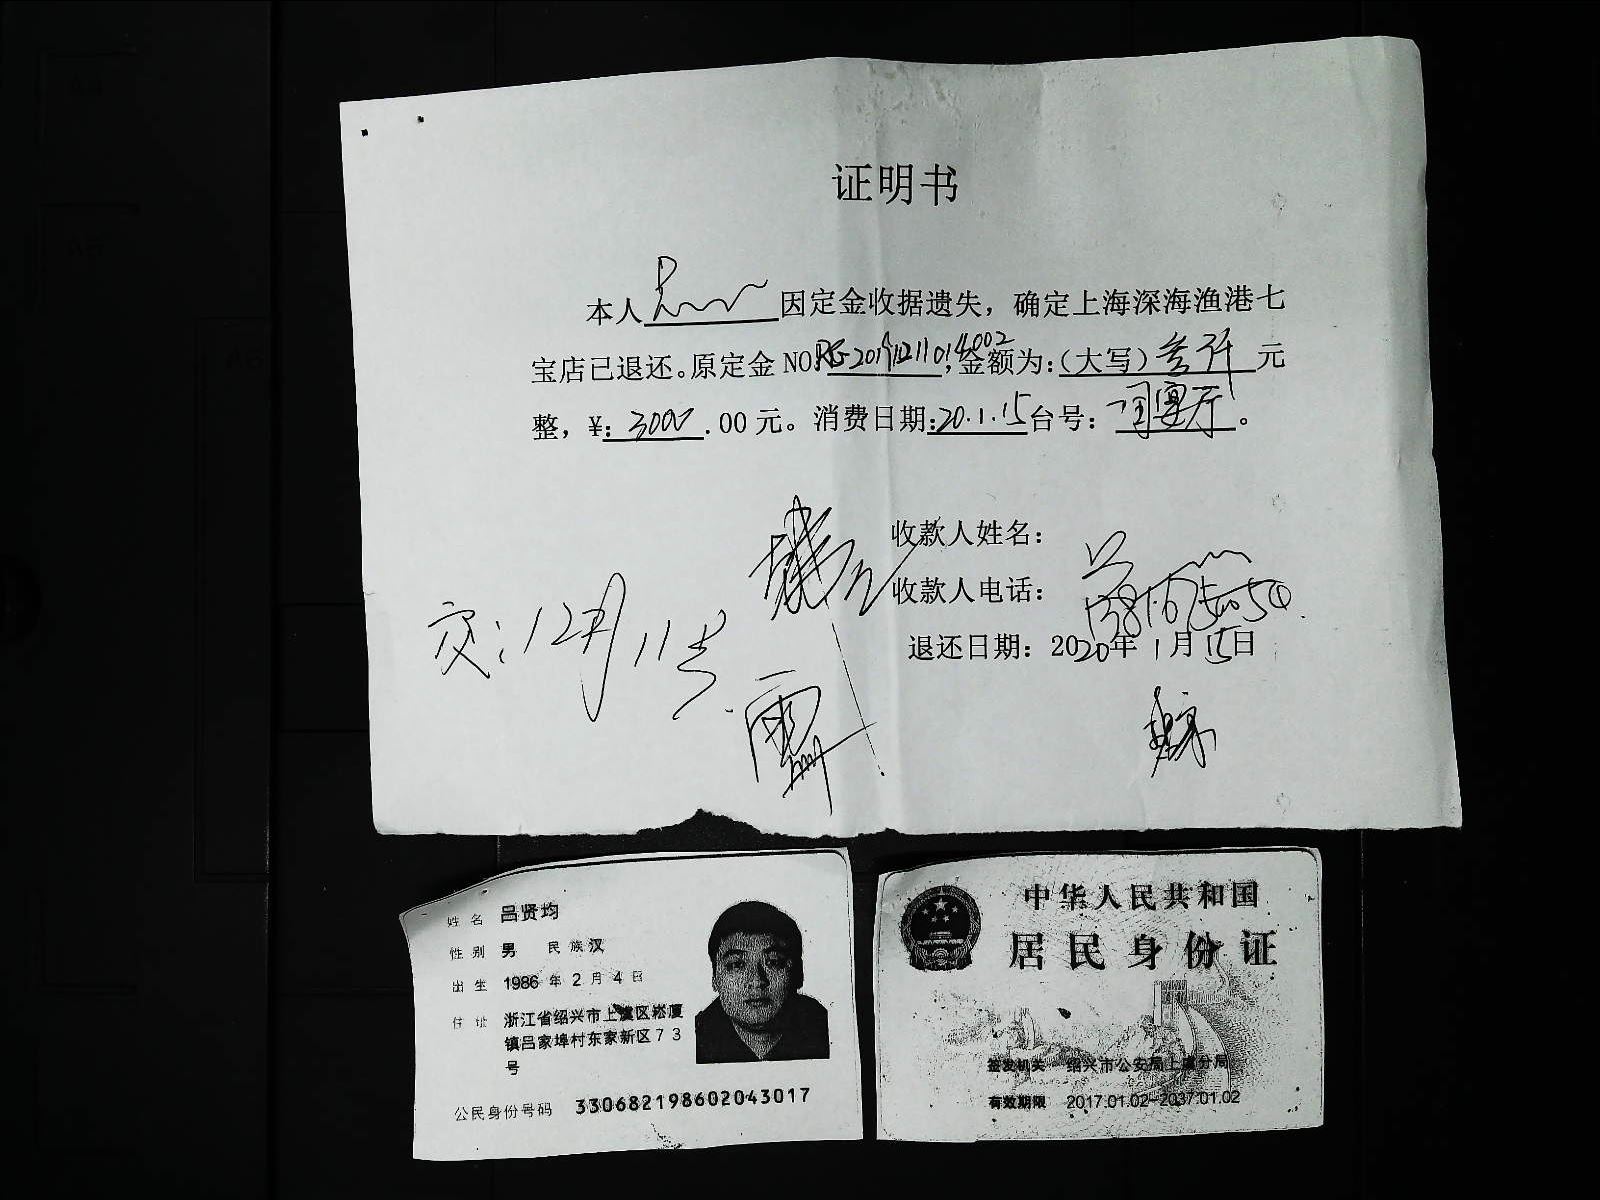 证明书
本人 因定金收据遗失，确定上海深海渔港七
宝店已退还。原定金NO: 20191211014002，金额为：（大写）叁仟元
整，¥：3000.00元。消费日期：20.1.15台号：国宴厅。
收款人姓名：
收款人电话：
交：12月11号
退还日期：2020年1月15日
姓名 吕贤均
性别 男 民族 汉
出生 1986年2月4日
住址 浙江省绍兴市上虞区崧厦
镇吕家埠村东家新区73
号
公民身份号码 330682198602043017
中华人民共和国
居民身份证
签发机关 绍兴市公安局上虞分局
有效期限 2017.01.02-2037.01.02